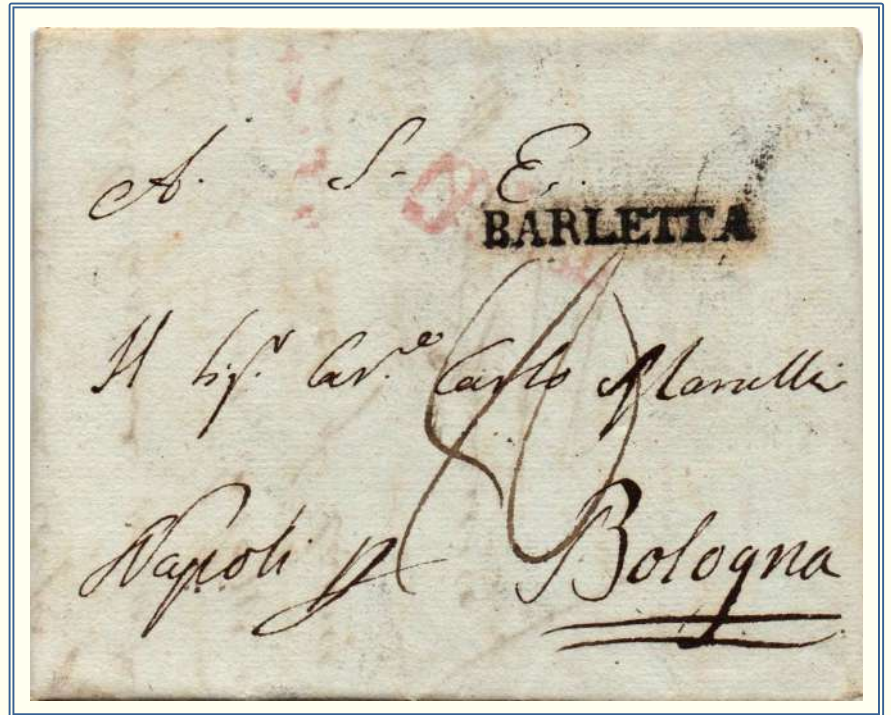 A. S. E.
BARLETTA
Il Sig.r Cav.e Carlo
Napoli p Bologna